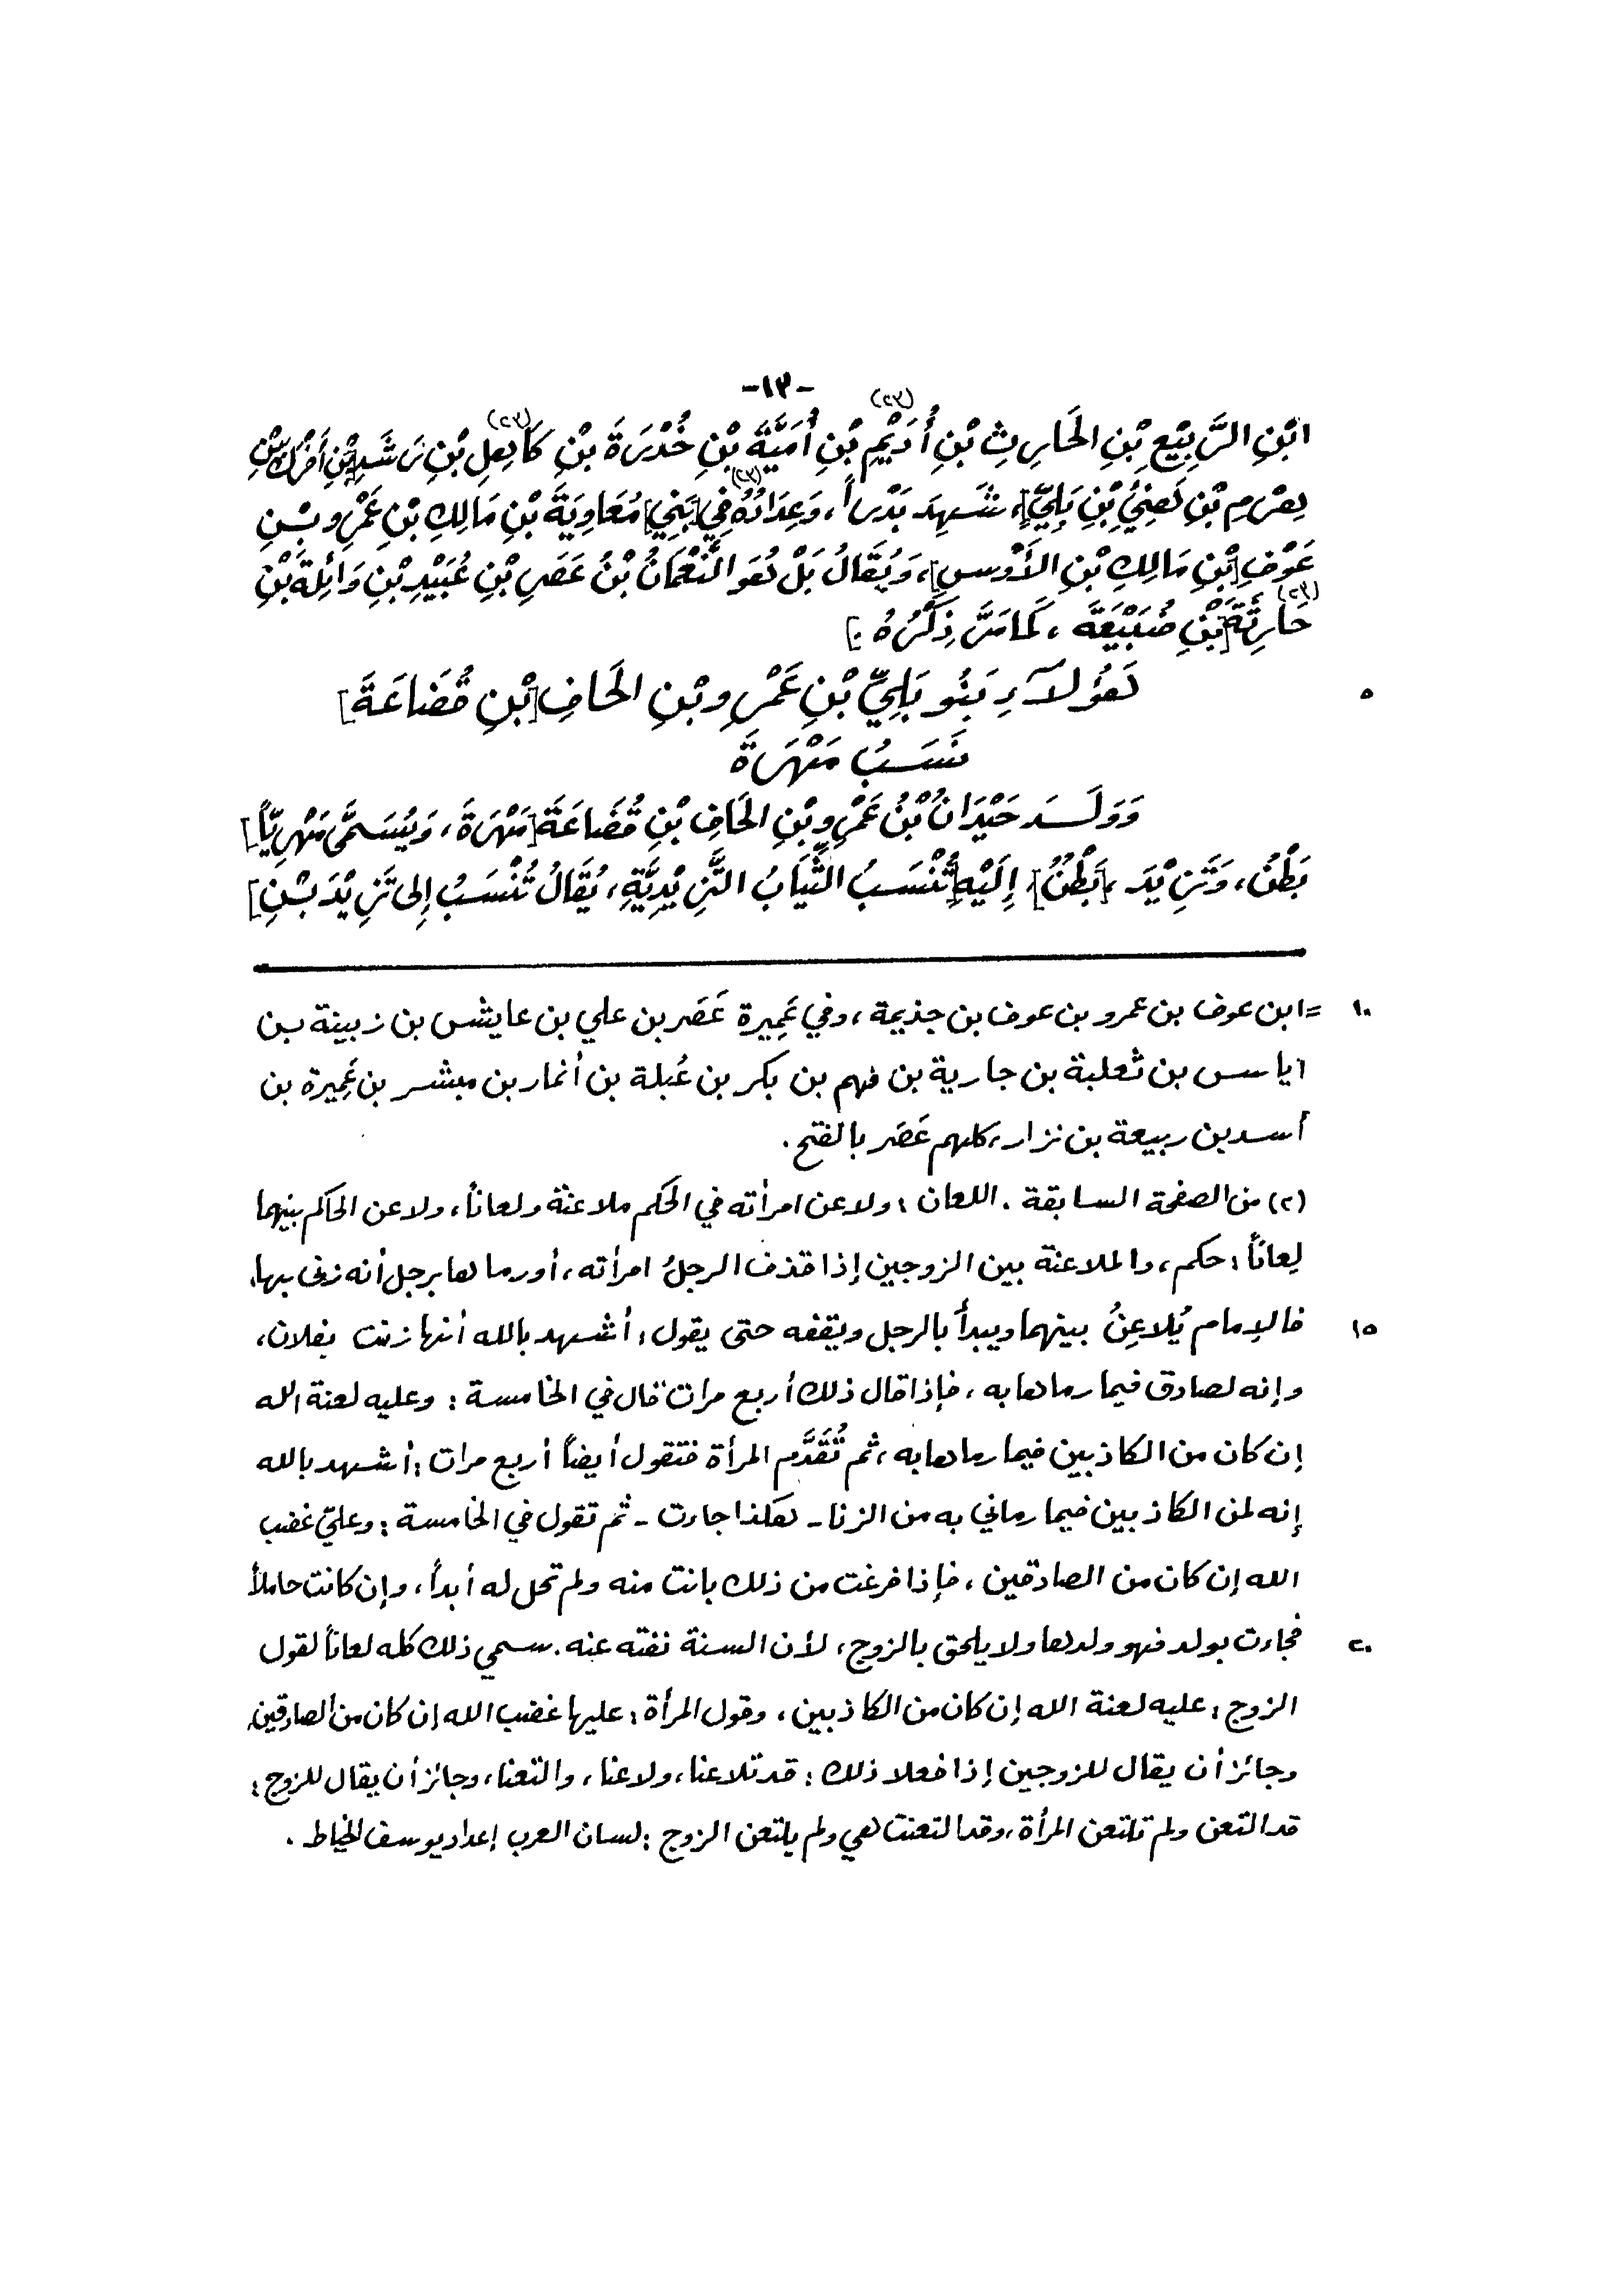 -١٣-
ابْنِ الرَّبِيْعِ بْنِ الحَارِثِ بْنِ أُدَيْمِ (٢٣) بْنِ أُمَيَّةَ بْنِ خُدْرَةَ بْنِ كَاهِلِ (٢٣) بْنِ رَشَدِ [بْنِ أَفْرَكَ بْنِ
هِرْمِ بْنِ هَنِيِّ بْنِ بَلِيٍّ]، شَهِدَ بَدْراً، وَعِدَادُهُ (٢٣) فِي [بَنِي] مُعَاوِيَةَ بْنِ مَالِكِ بْنِ عَمْرِو بْنِ
عَوْفِ [بْنِ مَالِكِ بْنِ الأَوْسِ]، وَيُقَالُ بَلْ هُوَ النُّعْمَانُ بْنُ عَصَرِ بْنِ عُبَيْدِ بْنِ وَائِلَةَ بْنِ
حَارِثَةَ (٢٣) [بْنِ ضُبَيْعَةَ، كَمَا مَرَّ ذِكْرُهُ.]
هَؤُلَآءِ بَنُو بَلِيِّ بْنِ عَمْرِو بْنِ الحَافِ [بْنِ قُضَاعَةَ] ٥
نَسَبُ مَهْرَةَ
وَوَلَدَ حَيْدَانُ بْنُ عَمْرِو بْنِ الحَافِ بْنِ قُضَاعَةَ [مَهْرَةَ، وَيُسَمَّى مَهْرِيّاً]
بَطْنٌ، وَتَزِيْدَ، [بَطْنٌ]، إِلَيْهِ [تُنْسَبُ الثِّيَابُ التَّزِيْدِيَّةِ، يُقَالُ تُنْسَبُ إِلى تَزِيْدَ بْنِ]
١٠ = ابن عوف بن عمرو بن عوف بن جذيمة، وفي عَمِيرة عَصَر بن علي بن عايش بن زبينة بن
اياس بن ثعلبة بن جارية بن فهم بن بكر بن عُبلة بن أنمار بن مبشر بن عَمِيرة بن
أسد بن ربيعة بن نزار، كلهم عَصَر بالفتح.
(٢) من الصفحة السابقة. اللعان: ولاعن امرأته في الحكم ملاعنة ولعاناً، ولاعن الحاكم بينهما
لِعاناً: حكم، والملاعنة بين الزوجين إذا قذف الرجلُ امرأته، أو رماها برجل أنه زنى بها،
١٥ فالإمام يُلاعِنُ بينهما ويبدأ بالرجل ويقفه حتى يقول: أشهد بالله أنها زنت بفلان،
وإنه لصادق فيما رماها به، فإذا قال ذلك أربع مرات قال في الخامسة: وعليه لعنة الله
إن كان من الكاذبين فيما رماها به، ثم تُقَدَّم المرأة فتقول أيضاً أربع مرات: أشهد بالله
إنه لمن الكاذبين فيما رماني به من الزنا - هكذا جاءت - ثم تقول في الخامسة: وعليّ غضب
الله إن كان من الصادقين، فإذا فرغت من ذلك بانت منه ولم تحل له أبداً، وإن كانت حاملاً
٢٠ فجاءت بولد فهو ولدها ولا يلحق بالزوج، لأن السنة نفته عنه. سمي ذلك كله لعاناً لقول
الزوج: عليه لعنة الله إن كان من الكاذبين، وقول المرأة: عليها غضب الله إن كان من الصادقين،
وجائز أن يقال للزوجين إذا فعلا ذلك: قد تلاعنا، ولاعنا، والتعنا، وجائز أن يقال للزوج:
قد التعن ولم تلتعن المرأة، وقد التعنت هي ولم يلتعن الزوج: لسان العرب إعداد يوسف الخياط.